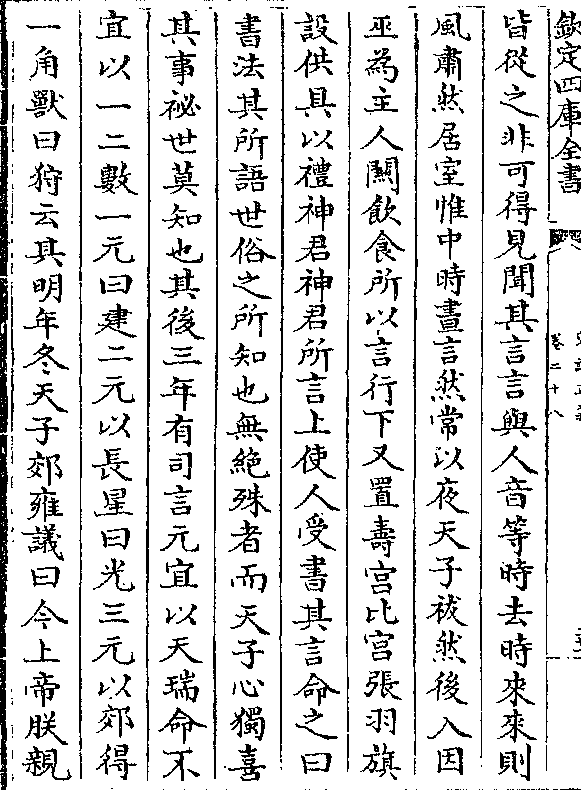 欽定四庫全書
卷二十八
皆從之非可得見聞其言言與人音等時去時來來則
風肅然居室惟中時晝言然常以夜天子祓然後入因
巫為主人關飲食所以言行下又置壽宮比宮張羽旗
設供具以禮神君神君所言上使人受書其言命之曰
書法其所語世俗之所知也無絶殊者而天子心獨喜
其事祕世莫知也其後三年有司言元宜以天瑞命不
宜以一二數一元曰建二元以長星曰光三元以郊得
一角獸曰狩云其明年冬天子郊雍議曰今上帝朕親